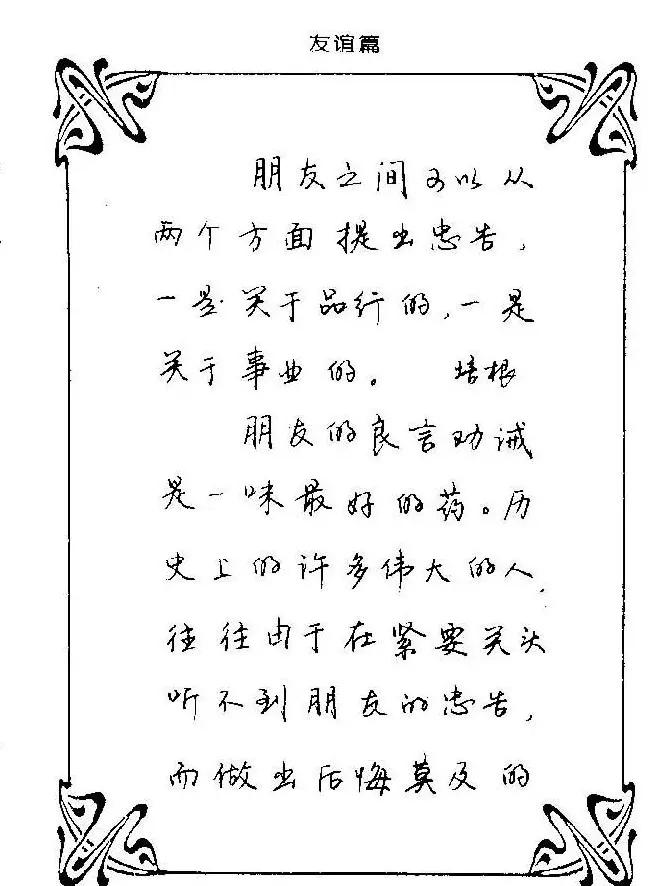 友谊篇
朋友之间可以从
两个方面提出忠告，
一是关于品行的，一是
关于事业的。 培根
朋友的良言劝诫
是一味最好的药。历
史上的许多伟大的人，
往往由于在紧要关头
听不到朋友的忠告，
而做出后悔莫及的